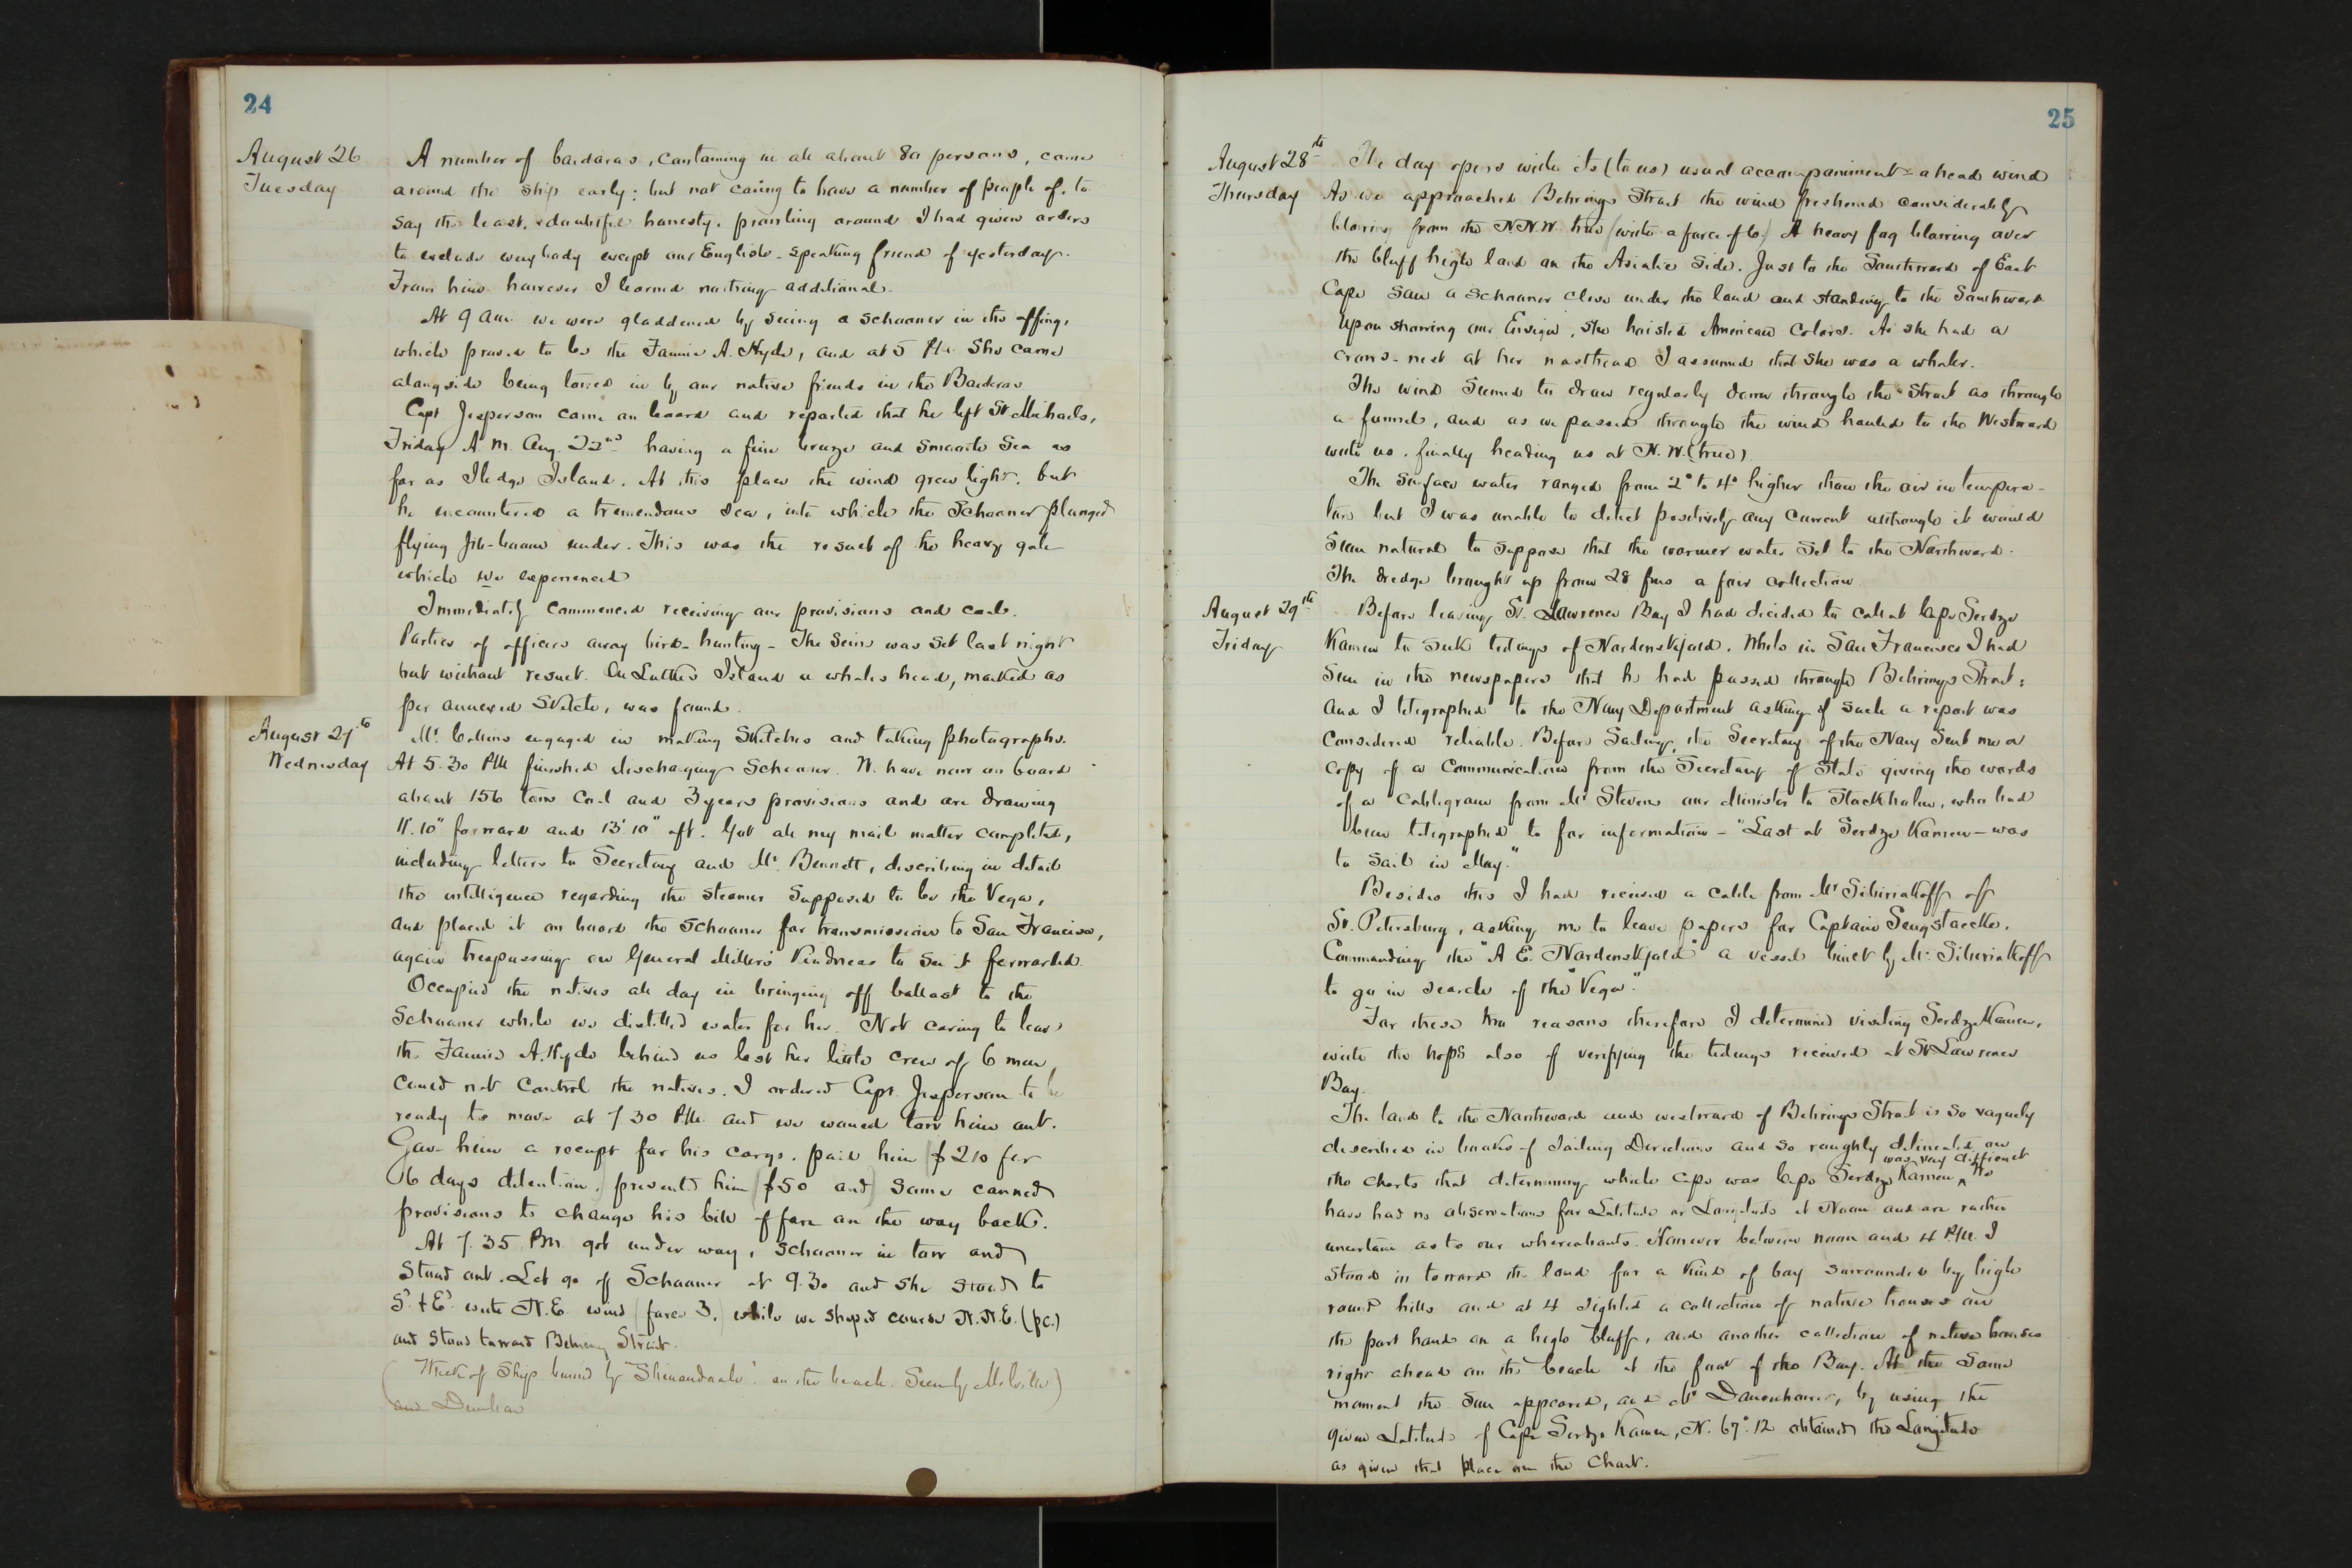 24
August 26
Tuesday
A number of baidaras, containing in all about 80 persons, came
around the ship early; but not caring to have a number of people of, to
say the least, doubtful honesty, prowling around I had given orders
to exclude everybody except our English-speaking friend of yesterday.
From him however I learned nothing additional.
At 9 am we were gladdened by seeing a schooner in the offing,
which proved to be the Fannie A. Hyde, and at 5 PM She came
alongside being towed in by our native friends in the Baidaras
Capt Jesperson came on board and reported that he left St Michaels,
Friday A.M. Aug. 22nd having a fine breeze and smooth Sea as
far as Sledge Island. At this place the wind grew light, but
he encountered a tremendous sea, into which the Schooner plunged
flying jib-boom under. This was the result of the heavy gale
which we experienced
Immediately commenced receiving our provisions and coal.
Parties of officers away bird-hunting - The Seine was set last night
but without result. On Lutke Island a whales head, marked as
per annexed Sketch, was found.
August 27th
Wednesday
Mr. Collins engaged in making Sketches and taking photographs.
At 5.30 PM finished discharging Schooner. We have now on board
about 156 tons Coal and 3 years provisions and are drawing
11'.10" forward and 13'.10" aft. Got all my mail matter completed,
including letters to Secretary and Mr. Bennett, describing in detail
the intelligence regarding the steamer Supposed to be the Vega,
and placed it on board the Schooner for transmission to San Francisco,
again trespassing on General Miller's Kindness to see it forwarded.
Occupied the natives all day in bringing off ballast to the
Schooner while we distilled water for her. Not caring to leave
the Fannie A. Hyde behind us lest her little crew of 6 men
could not control the natives. I ordered Capt. Jesperson to be
ready to move at 7 30 PM and we would tow him out.
Gave him a receipt for his cargo. paid him $210 for
6 days detention. presented him $50 and some canned
provisions to change his bill of fare on the way back.
At 7.35 Pm. got under way, Schooner in tow and
Stood out. Let go of Schooner at 9.30 and she stood to
S'd & E'd with N.E. wind (force 3.) while we shaped course N.N.E. (p.c.)
and stood toward Behring Strait.
(Wreck of Ship burned by "Shenandoah" on the beach. Seen by Melville)
and Dunbar
25
August 28th
Thursday
The day opens with its (to us) usual accompaniment - a head wind
As we approached Behrings Strait the wind freshened considerably
blowing from the NNW. true (with a force of 6.) A heavy fog blowing over
the bluff high land on the Asiatic Side. Just to the Southward of East
Cape Saw a Schooner close under the land and standing to the Southward
Upon showing our Ensign, she hoisted American Colors. As she had a
crows-nest at her masthead I assumed that She was a whaler.
The wind Seemed to draw regularly down through the Strait as through
a funnel, and as we passed through the wind hauled to the Westward
with us. finally heading us at N.W. (true)
The Surface water ranged from 2° to 4° higher than the air in tempera-
ture but I was unable to detect positively any Current although it would
Seem natural to Suppose that the warmer water Set to the Northward.
The dredge brought up from 28 fms a fair collection
August 29th
Friday
Before leaving St. Lawrence Bay I had decided to call at Cape Serdze
Kamen to Seek tidings of Nordenskjold. While in San Francisco I had
Seen in the newspapers that he had passed through Behrings Strait;
and I telegraphed to the Navy Department asking if such a report was
considered reliable. Before Sailing, the Secretary of the Navy Sent me a
copy of a communication from the Secretary of State giving the words
of a Cablegram from Mr Stevens our Minister to Stockholm, who had
been telegraphed to for information - "Last at Serdze Kamen - was
to Sail in May."
Besides this I had received a cable from Mr Sibiriakoff of
St. Petersburg, asking me to leave papers for Captain Sengstacke.
Commanding the "A. E. Nordenskjold" a vessel built by Mr. Sibiriakoff
to go in search of the "Vega".
For these two reasons therefore I determined visiting Serdze Kamen,
with the hope also of verifying the tidings received at St Lawrence
Bay.
The land to the Northward and westward of Behrings Strait is So vaguely
described in books of Sailing Directions and so roughly delineated on
the charts that determining which cape was Cape Serdze Kamen ^ was very difficult We
have had no observations for Latitude or Longitude at Noon and are rather
uncertain as to our whereabouts. However between noon and 4 PM. I
Stood in toward the land for a Kind of bay surrounded by high
round hills and at 4 sighted a collection of native houses on
the port hand on a high bluff, and another collection of native houses
right ahead on the beach at the foot of the Bay. At the Same
moment the Sun appeared, and Mr Danenhower, by using the
given Latitude of Cape Serdze Kamen, N. 67°.12 obtained the Longitude
as given that place on the Chart.